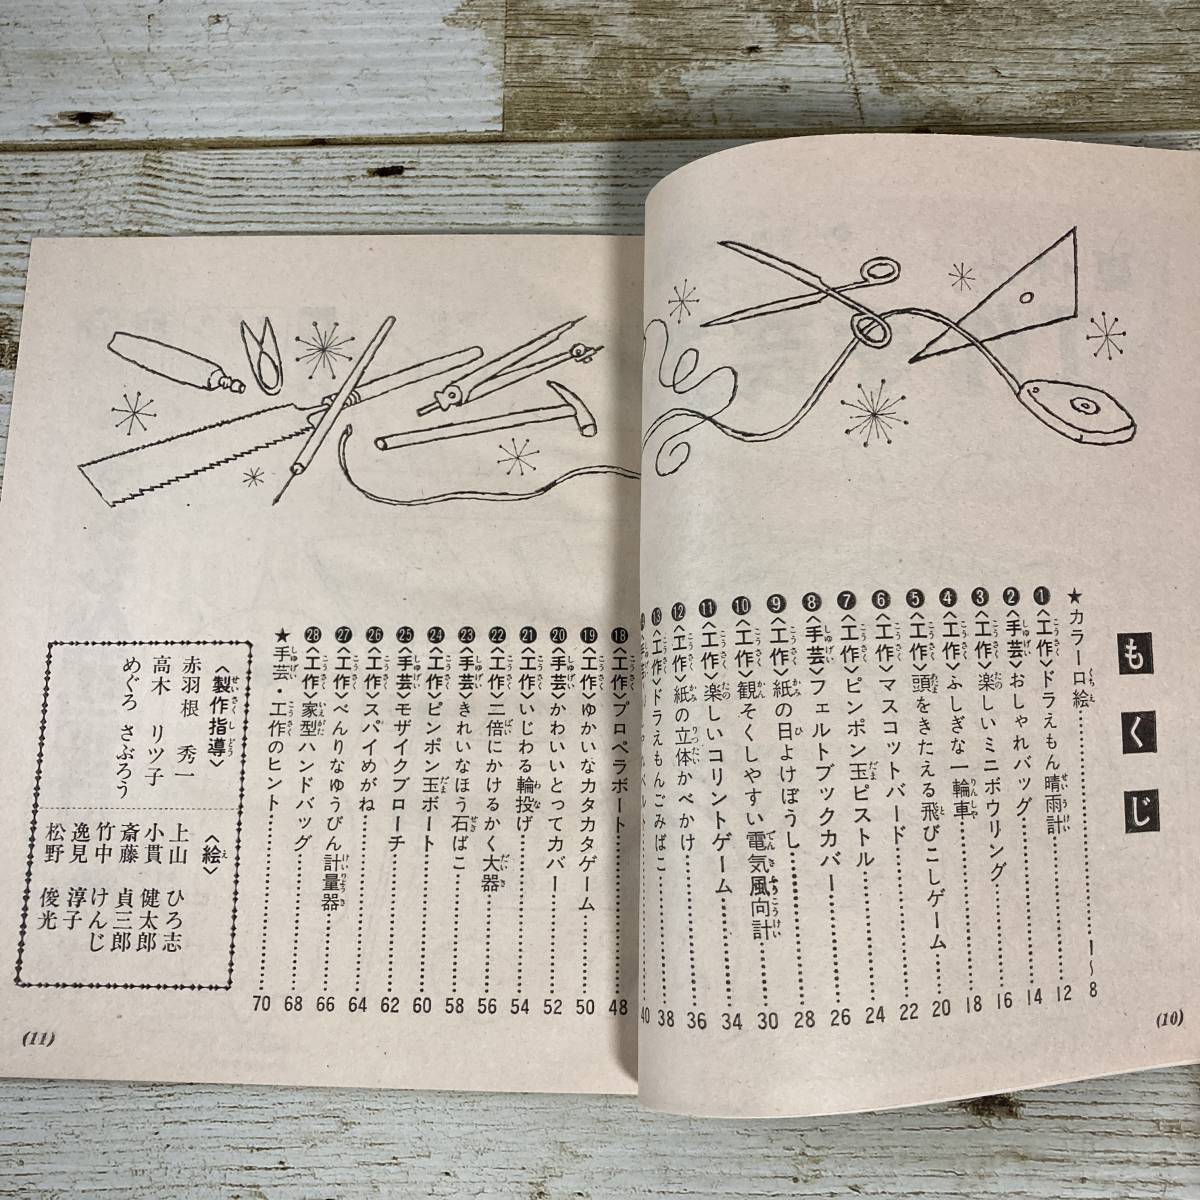 もくじ
★カラー口絵……1〜8
❶〈工作〉ドラえもん晴雨計……12
❷〈手芸〉おしゃれバッグ……14
❸〈工作〉楽しいミニボウリング……16
❹〈工作〉ふしぎな一輪車……18
❺〈工作〉頭をきたえる飛びこしゲーム……20
❻〈工作〉マスコットバード……22
❼〈工作〉ピンポン玉ピストル……24
❽〈手芸〉フェルトブックカバー……26
❾〈工作〉紙の日よけぼうし……28
❿〈工作〉観そくしやすい電気風向計……30
⓫〈工作〉楽しいコリントゲーム……34
⓬〈工作〉紙の立体かべかけ……36
⓭〈工作〉ドラえもんごみばこ……38
40
(10)
⓲〈工作〉プロペラボート……48
⓳〈工作〉ゆかいなカタカタゲーム……50
⓴〈手芸〉かわいいとってカバー……52
㉑〈工作〉いじわる輪投げ……54
㉒〈工作〉二倍にかけるかく大器……56
㉓〈手芸〉きれいなほう石ばこ……58
㉔〈工作〉ピンポン玉ボート……60
㉕〈手芸〉モザイクブローチ……62
㉖〈工作〉スパイめがね……64
㉗〈工作〉べんりなゆうびん計量器……66
㉘〈工作〉家型ハンドバッグ……68
★手芸・工作のヒント……70
〈製作指導〉
赤羽根 秀一
高木 リツ子
めぐろ さぶろう
〈絵〉
上山 ひろ志
小貫 健太郎
斎藤 貞三郎
竹中 けんじ
逸見 淳子
松野 俊光
(11)